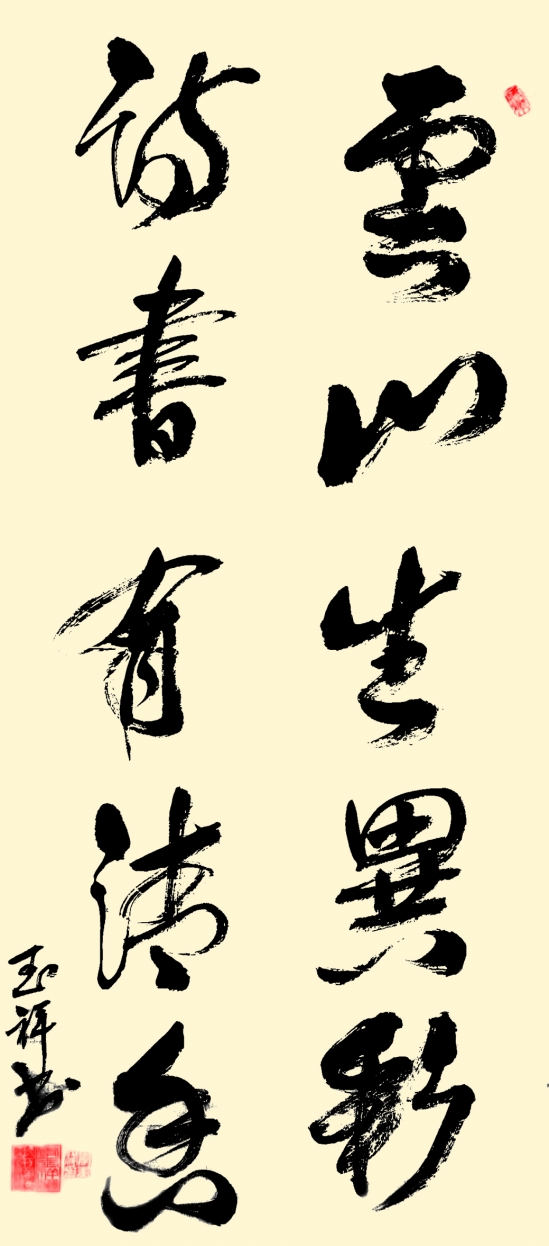 雲山生異彩
詩書有清香
玉祥書